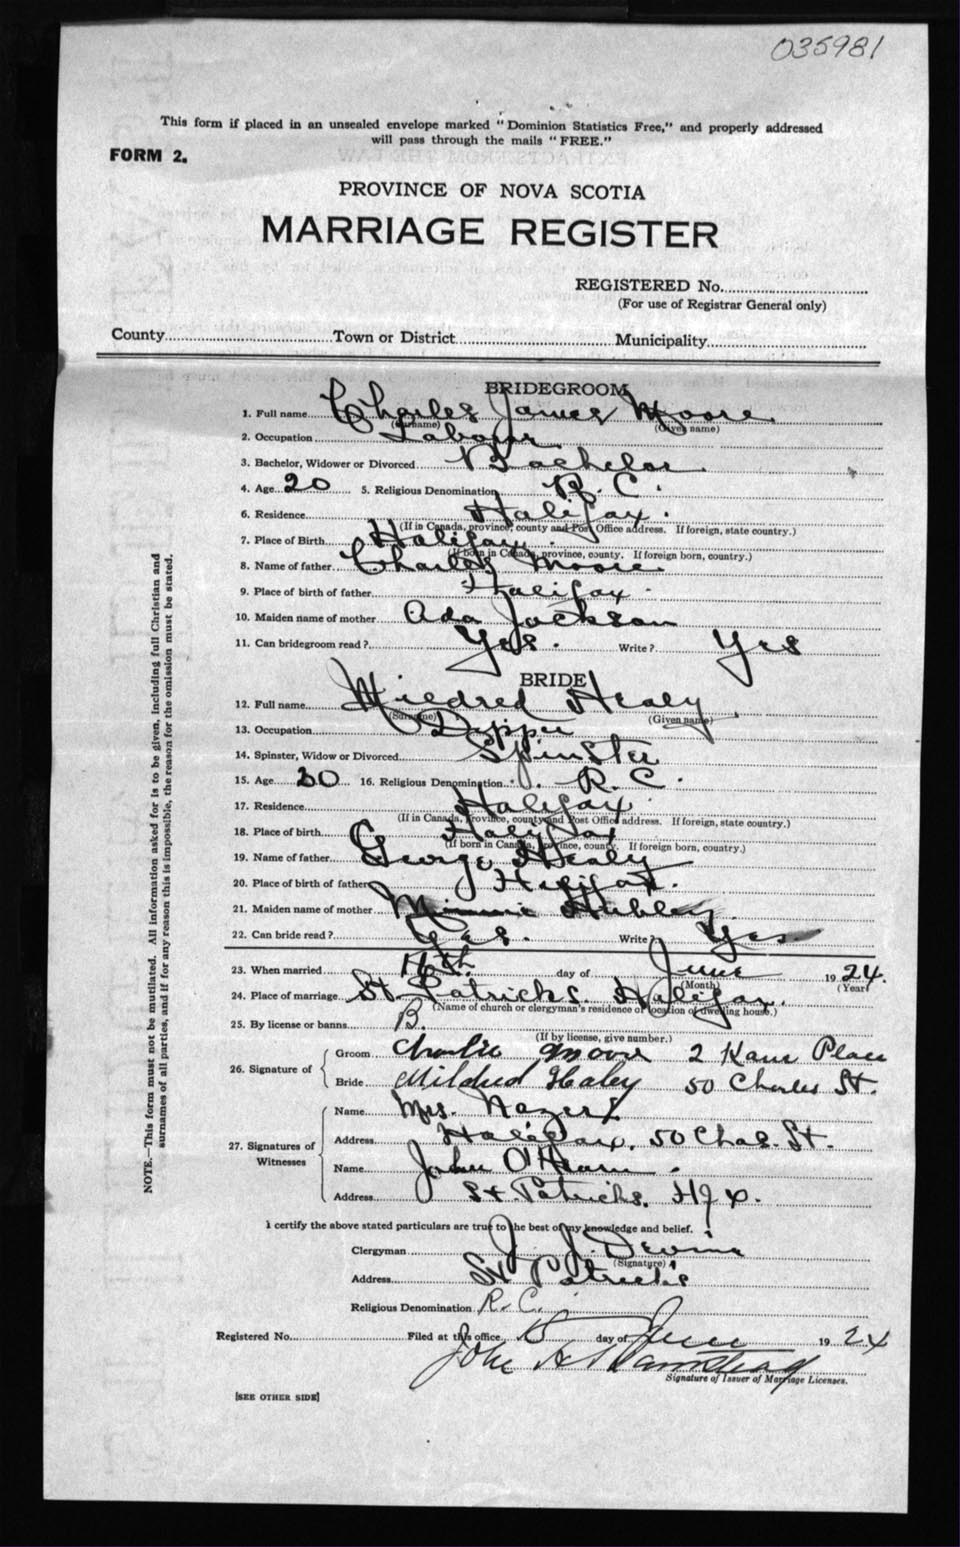 035981
This form if placed in an unsealed envelope marked "Dominion Statistics Free," and properly addressed
will pass through the mails "FREE."
FORM 2.
PROVINCE OF NOVA SCOTIA
MARRIAGE REGISTER
REGISTERED No.
(For use of Registrar General only)
County Town or District Municipality
BRIDEGROOM
1. Full name Charles James Moore
(Surname) (Given name)
2. Occupation Labour
3. Bachelor, Widower or Divorced Bachelor
4. Age 20 5. Religious Denomination R. C.
6. Residence Halifax.
(If in Canada, province, county and Post Office address. If foreign, state country.)
7. Place of Birth Halifax.
(If born in Canada, province, county. If foreign born, country.)
8. Name of father Charles Moore
9. Place of birth of father Halifax
10. Maiden name of mother Ada Jackson
11. Can bridegroom read? Yes. Write? Yes
BRIDE
12. Full name Mildred Healy
(Surname) (Given name)
13. Occupation Dipper
14. Spinster, Widow or Divorced Spinster
15. Age 20 16. Religious Denomination R. C.
17. Residence Halifax
(If in Canada, Province, county and Post Office address. If foreign, state country.)
18. Place of birth Halyfax
(If born in Canada, province, county. If foreign born, country.)
19. Name of father George Healy
20. Place of birth of father Halifax.
21. Maiden name of mother Minnie Hubley
22. Can bride read? Yes. Write? Yes
23. When married 16th day of June 1924.
(Month) (Year)
24. Place of marriage St. Patricks. Halifax.
(Name of church or clergyman's residence or location of dwelling house.)
25. By license or banns B.
(If by license, give number.)
26. Signature of
Groom Charlie Moore 2 Kane Place
Bride Mildred Healey 50 Charles St.
27. Signatures of Witnesses
Name Mrs.
Address Halifax, 50 Chas. St.
Name John O'Hearn.
Address St Patricks. Hfx.
I certify the above stated particulars are true to the best of my knowledge and belief.
Clergyman J. J. Devine
(Signature)
Address St Patricks
Religious Denomination R.C.
Registered No. Filed at this office day of June 1924
John H
Signature of Issuer of Marriage Licenses.
[SEE OTHER SIDE]
NOTE.—This form must not be mutilated. All information asked for is to be given, including full Christian and
surnames of all parties, and if for any reason this is impossible, the reason for the omission must be stated.